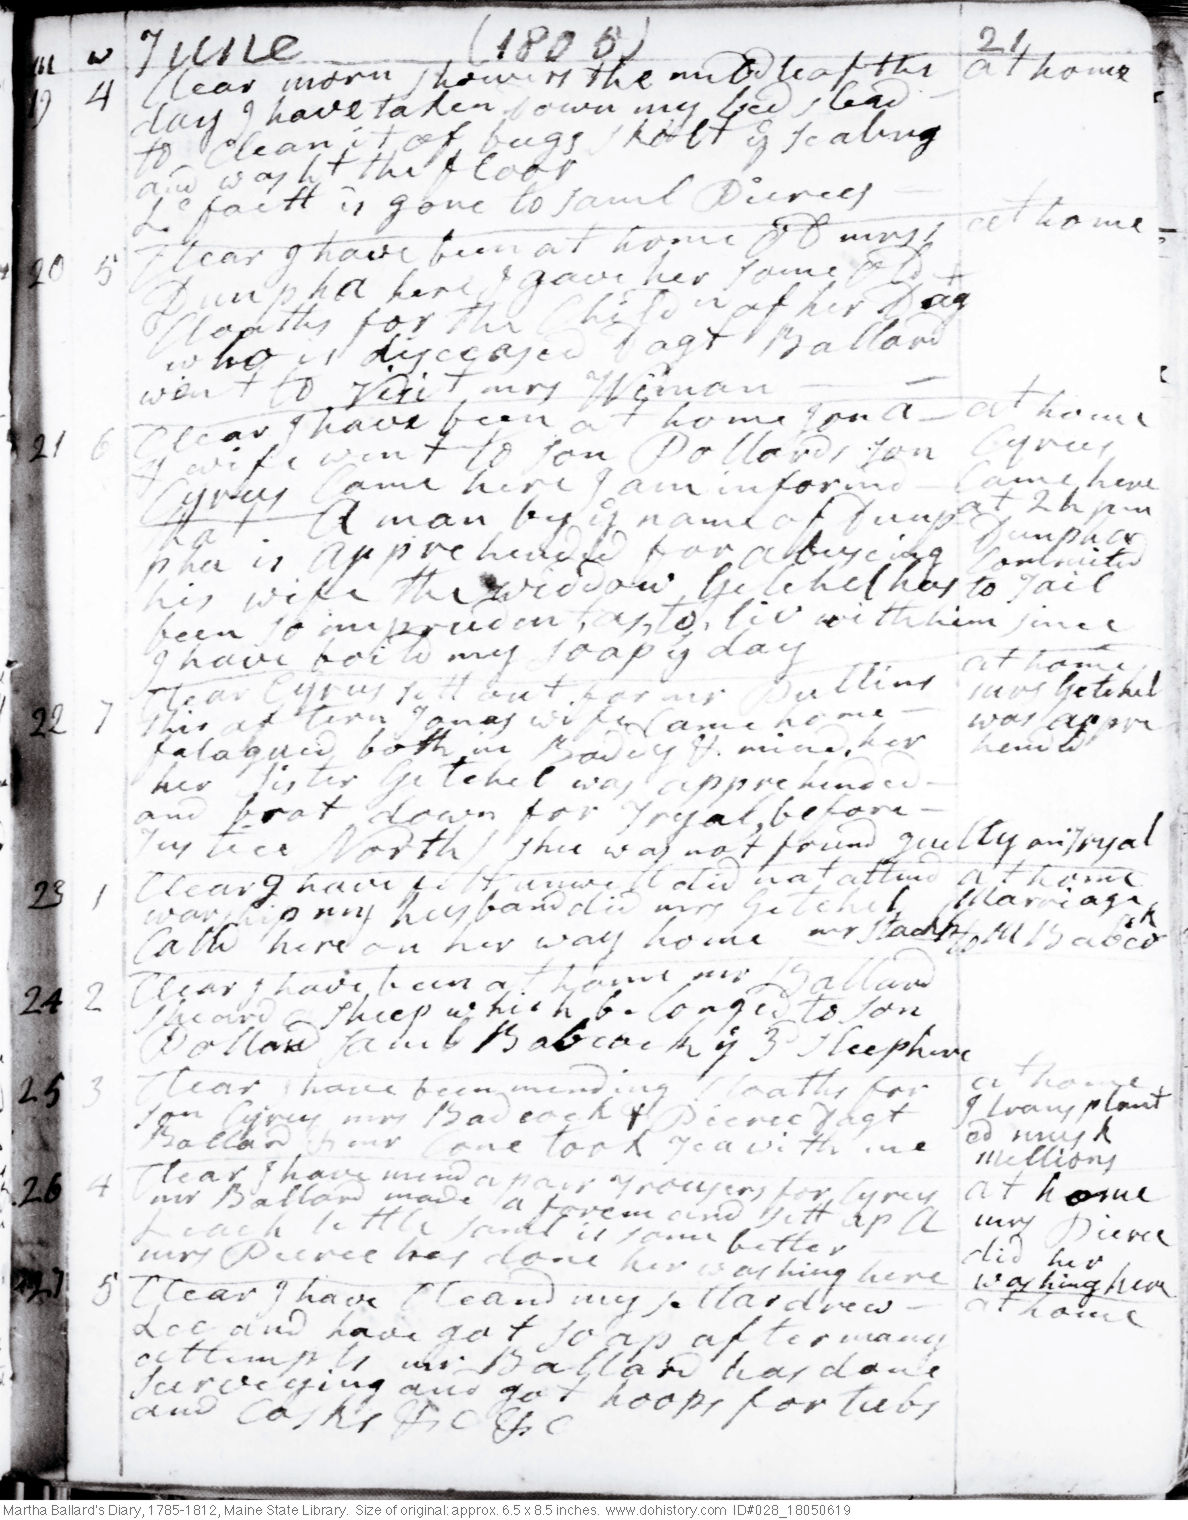 m w June (1805) 21
19 4 Clear morn showers the middle of the at home
day I have taken down my bed stead
to Clean it of bugs skalt & scaling
and washt the floor
Lefaett is gone to Saml Pierces
20 5 Clear I have been at home old mrs at home
Dunpha here I gave her some old
Cloaths for the Childn of her Dag
who is disceased Dagt Ballard
went to visit mrs Wiman
21 6 Clear I have been at home Jona at home
& wife went to son Pollards son Cyrus
Cyrus Came here I am informd Came here
that A man by ye name of Dunp at 2 h pm
pha is apprehended for abuseing Dunpha Committed
his wife the widdow Getchel has to Jail
been so imprudent as to liv with him since
I have boild my soap ye day
22 7 Clear Cyrus sett out for mr Pullins at home
this aftern Jonas wife Came home mrs Getchel
fataguied both in Bodey & mind, her was appre
her sister Getchel was apprehended hend
and brot down for Tryal before
Justice North shee was not found guilty on Tryal
23 1 Clear I have felt unwell did not attend at home
worship my husband did mrs Getchel Marriage
Calld here on her way home mr Stackp to M Babcok
24 2 Clear I have been at home mr Ballard
sheard a sheep which belonged to son
Pollard Saml Babcock & 3 sleep here
25 3 Clear I have been mending Cloaths for at home
son Cyrus mrs Badcock & Pierce Dagt I transplant
Ballard & mr Cone took Tea with me ed musk
millions
26 4 Clear I have mend a pair Trousers for Cyrus at home
mr Ballard made a forem and sett up A mrs Pierce
Leach little Saml is some better did her
mrs Pierce has done her washing here washing here
27 5 Clear I have Cleand my sellar drew at home
Lee and have got soap after many
attempts mr Ballard has done
surveying and got hoops for tubs
and Casks &C &C
Martha Ballard's Diary, 1785-1812, Maine State Library. Size of original: approx. 6.5 x 8.5 inches. www.dohistory.com ID#028_18050619